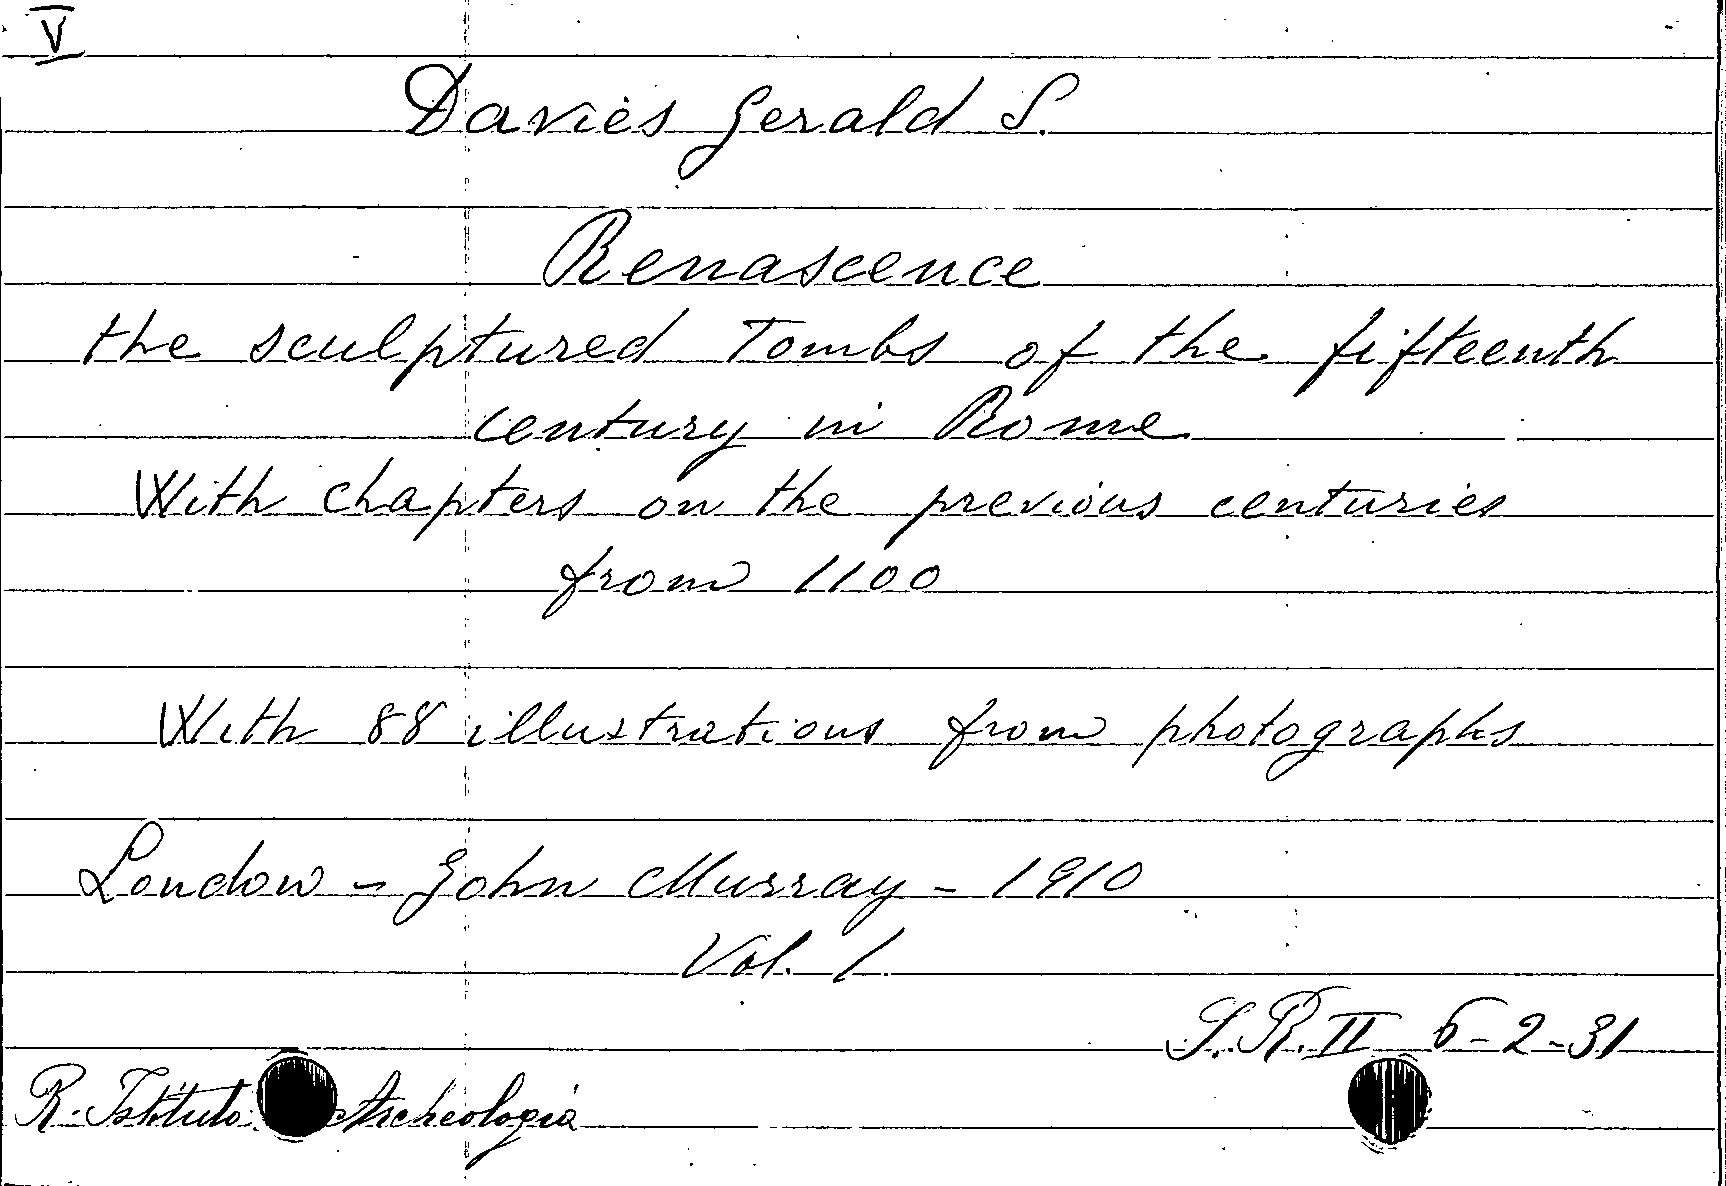 V
Davies Gerald S.
Renascence
the sculptured Tombs of the fifteenth
century in Rome
With chapters on the previous centuries
from 1100
With 88 illustrations from photographs
London - John Murray - 1910
Vol. 1.
S.R. II 6-2-31
R. Istituto Archeologia